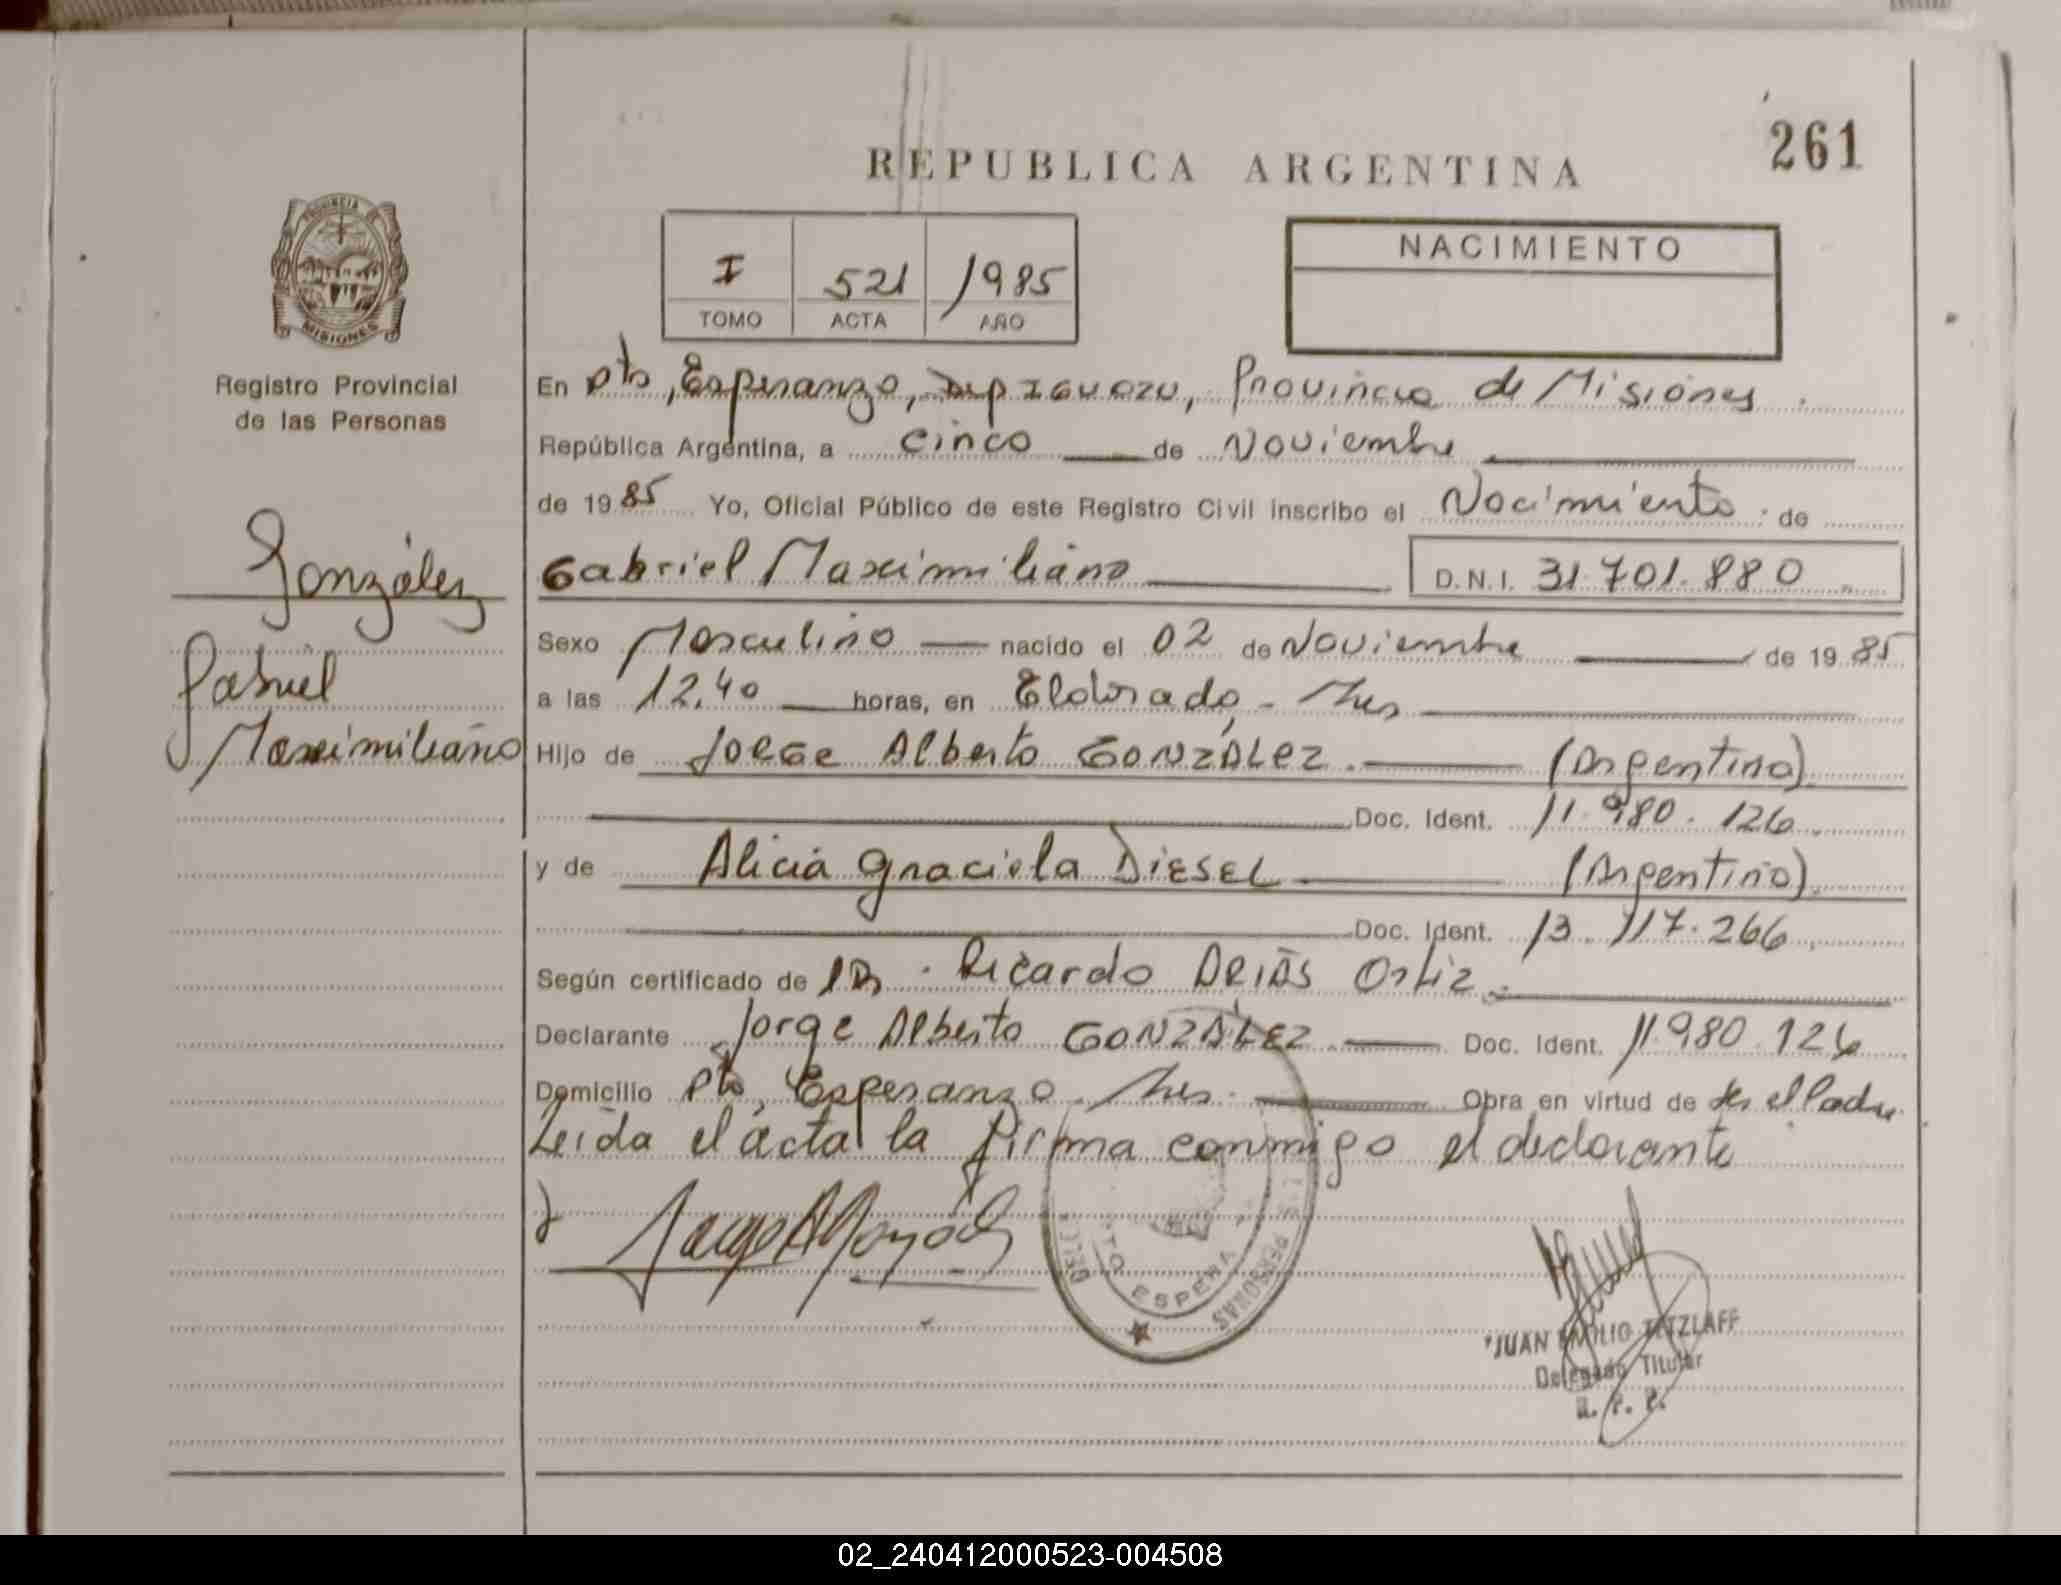 261
REPUBLICA ARGENTINA
PROVINCIA DE
MISIONES
Registro Provincial
de las Personas
I 521 1985
TOMO ACTA AÑO
NACIMIENTO
En Pto, Esperanza, Dep Iguazu, Provincia de Misiones.
República Argentina, a cinco de Noviembre
de 1985 Yo, Oficial Público de este Registro Civil inscribo el Nacimiento de
Gabriel Maximiliano D.N.I. 31.701.880
González
Gabriel
Maximiliano
Sexo Masculino nacido el 02 de Noviembre de 1985
a las 12,40 horas, en Eldorado - Mnes
Hijo de Jorge Alberto GONZÁLEZ. (Argentino)
Doc. Ident. 11.980.126.
y de Alicia Graciela DIESEL (Argentina)
Doc. Ident. 13.717.266
Según certificado de Dr. Ricardo ARIAS Ortiz.
Declarante Jorge Alberto GONZÁLEZ Doc. Ident. 11.980.126
Domicilio Pto, Esperanza. Mnes. Obra en virtud de ser el Padre
Leida el acta la firma conmigo el declarante
PTO ESPERA
PERSONAS
DELEG
JUAN EMILIO TETZLAFF
Delegado Titular
R. P. P.
02_240412000523-004508